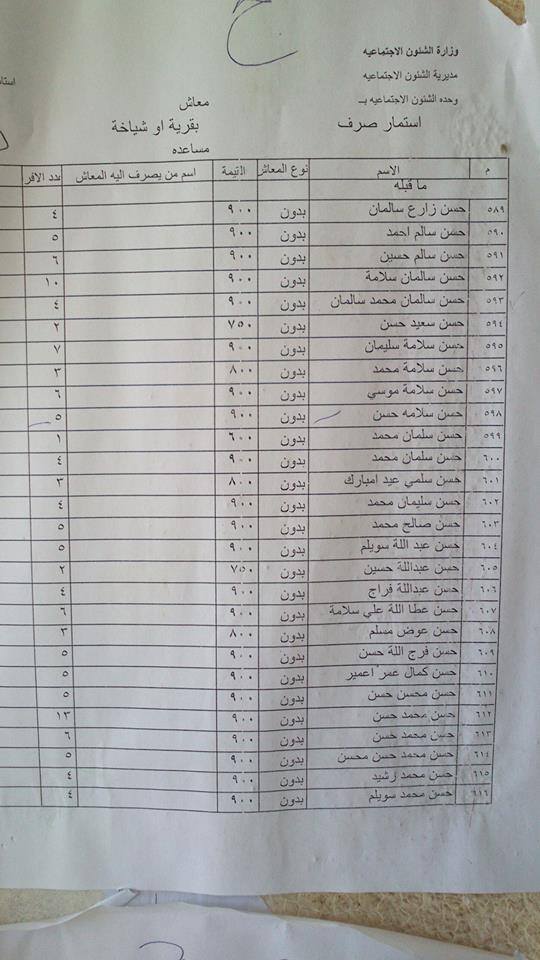 ح
وزارة الشئون الاجتماعيه
مديرية الشئون الاجتماعيه
وحده الشئون الاجتماعيه بـ
استمار صرف
معاش
بقرية او شياخة
مساعده
م الاسم نوع المعاش القيمة اسم من يصرف اليه المعاش عدد الافر
ما قبله
٥٨٩ حسن زارع سالمان بدون ٩٠٠ ٤
٥٩٠ حسن سالم احمد بدون ٩٠٠ ٥
٥٩١ حسن سالم حسين بدون ٩٠٠ ٦
٥٩٢ حسن سالمان سلامة بدون ٩٠٠ ١٠
٥٩٣ حسن سالمان محمد سالمان بدون ٩٠٠ ٤
٥٩٤ حسن سعيد حسن بدون ٧٥٠ ٢
٥٩٥ حسن سلامة سليمان بدون ٩٠٠ ٧
٥٩٦ حسن سلامة محمد بدون ٨٠٠ ٣
٥٩٧ حسن سلامة موسي بدون ٩٠٠ ٦
٥٩٨ حسن سلامه حسن بدون ٩٠٠ ٥
٥٩٩ حسن سلمان محمد بدون ٦٠٠ ١
٦٠٠ حسن سلمان محمد بدون ٩٠٠ ٤
٦٠١ حسن سلمي عيد امبارك بدون ٨٠٠ ٣
٦٠٢ حسن سليمان محمد بدون ٩٠٠ ٤
٦٠٣ حسن صالح محمد بدون ٩٠٠ ٥
٦٠٤ حسن عبد اللة سويلم بدون ٩٠٠ ٥
٦٠٥ حسن عبداللة حسين بدون ٧٥٠ ٢
٦٠٦ حسن عبداللة فراج بدون ٩٠٠ ٤
٦٠٧ حسن عطا اللة علي سلامة بدون ٩٠٠ ٦
٦٠٨ حسن عوض مسلم بدون ٨٠٠ ٣
٦٠٩ حسن فرج اللة حسن بدون ٩٠٠ ٥
٦١٠ حسن كمال عمر اعمير بدون ٩٠٠ ٥
٦١١ حسن محسن حسن بدون ٩٠٠ ٥
٦١٢ حسن محمد حسن بدون ٩٠٠ ١٣
٦١٣ حسن محمد حسن بدون ٩٠٠ ٦
٦١٤ حسن محمد حسن محسن بدون ٩٠٠ ٥
٦١٥ حسن محمد رشيد بدون ٩٠٠ ٤
٦١٦ حسن محمد سويلم بدون ٩٠٠ ٤